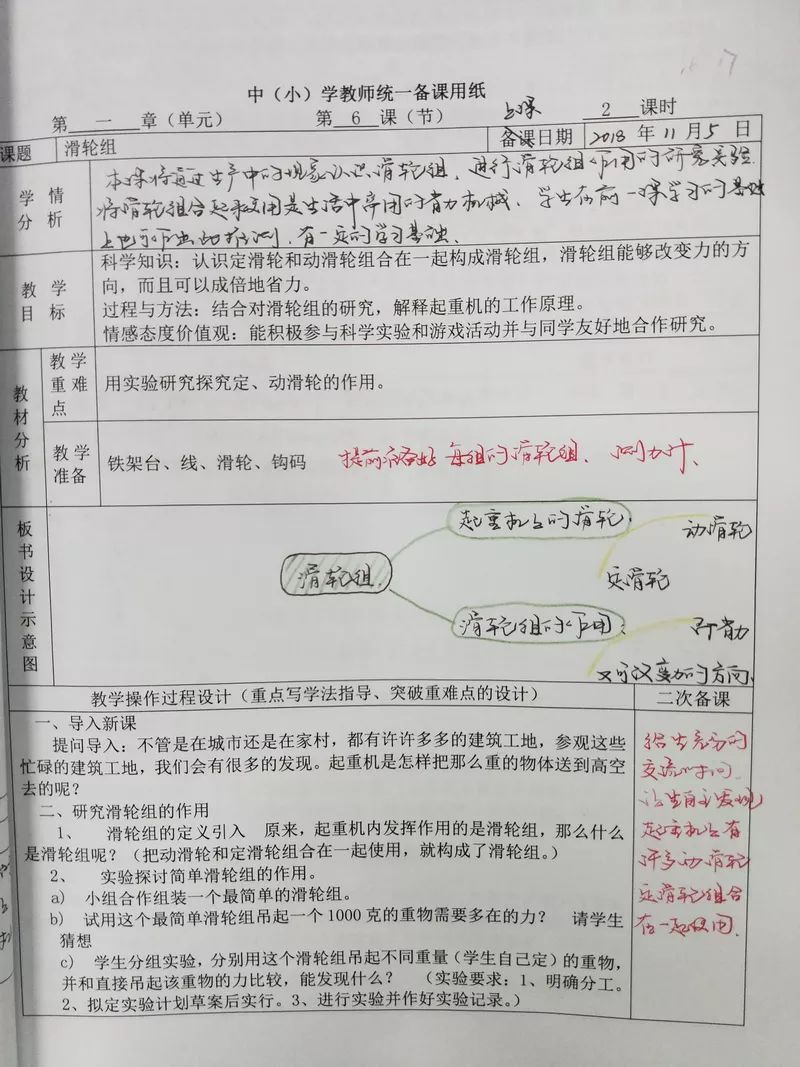 中（小）学教师统一备课用纸
第 一 章（单元） 第 6 课（节） 上课 2 课时
课题 滑轮组 备课日期 2018 年 11 月 5 日
学情分析
本课将通过生产中的现象认识滑轮组，进行滑轮组作用的研究实验.
将滑轮组合起来使用是生活中常用的省力机械. 学生在前一课学习的基础
上也可作出的推测，有一定的学习基础.
教学目标
科学知识：认识定滑轮和动滑轮组合在一起构成滑轮组，滑轮组能够改变力的方
向，而且可以成倍地省力。
过程与方法：结合对滑轮组的研究，解释起重机的工作原理。
情感态度价值观：能积极参与科学实验和游戏活动并与同学友好地合作研究。
教材分析
教学重难点
用实验研究探究定、动滑轮的作用。
教学准备
铁架台、线、滑轮、钩码 提前准备好每组的滑轮组、测力计、
板书设计示意图
滑轮组
起重机上的滑轮
动滑轮
定滑轮
滑轮组的作用：
省力
又可改变力的方向.
教学操作过程设计（重点写学法指导、突破重难点的设计）
一、导入新课
提问导入：不管是在城市还是在家村，都有许许多多的建筑工地，参观这些
忙碌的建筑工地，我们会有很多的发现。起重机是怎样把那么重的物体送到高空
去的呢？
二、研究滑轮组的作用
1、 滑轮组的定义引入 原来，起重机内发挥作用的是滑轮组，那么什么
是滑轮组呢？（把动滑轮和定滑轮组合在一起使用，就构成了滑轮组。）
2、 实验探讨简单滑轮组的作用。
a) 小组合作组装一个最简单的滑轮组。
b) 试用这个最简单滑轮组吊起一个 1000 克的重物需要多在的力？ 请学生
猜想
c) 学生分组实验，分别用这个滑轮组吊起不同重量（学生自己定）的重物，
并和直接吊起该重物的力比较，能发现什么？ （实验要求：1、明确分工。
2、拟定实验计划草案后实行。3、进行实验并作好实验记录。）
二次备课
给生充分的
交流时间
让生自主发现
起重机上有
许多动滑轮
定滑轮组合
在一起使用.